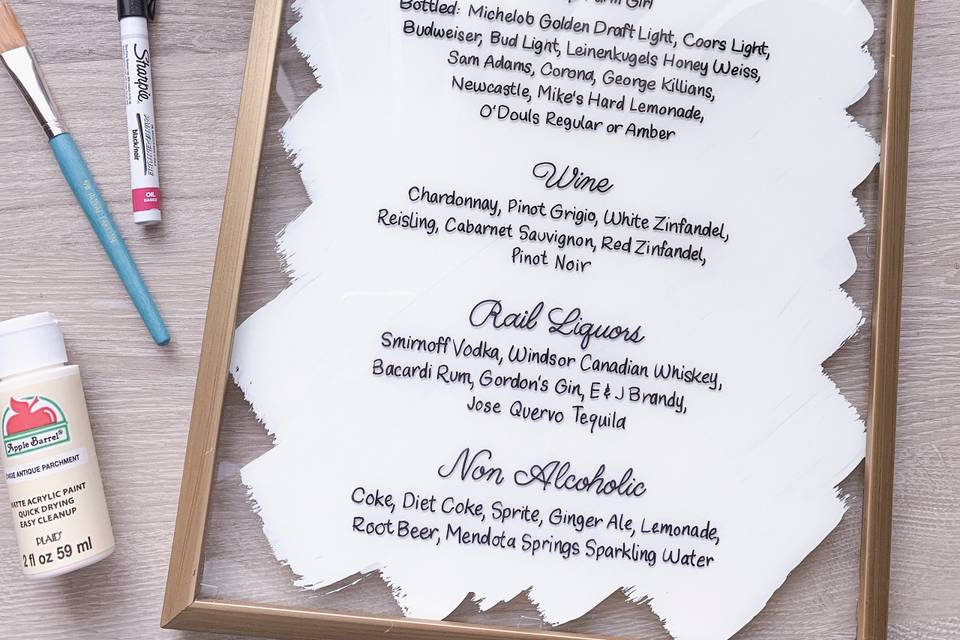 Girl
Bottled: Michelob Golden Draft Light, Coors Light,
Budweiser, Bud Light, Leinenkugels Honey Weiss,
Sam Adams, Corona, George Killians,
Newcastle, Mike's Hard Lemonade,
O'Douls Regular or Amber
Wine
Chardonnay, Pinot Grigio, White Zinfandel,
Reisling, Cabarnet Sauvignon, Red Zinfandel,
Pinot Noir
Rail Liquors
Smirnoff Vodka, Windsor Canadian Whiskey,
Bacardi Rum, Gordon's Gin, E & J Brandy,
Jose Quervo Tequila
Non Alcoholic
Coke, Diet Coke, Sprite, Ginger Ale, Lemonade,
Root Beer, Mendota Springs Sparkling Water
Sharpie
black/noir
OIL
BASED
Apple Barrel
ANTIQUE PARCHMENT
MATTE ACRYLIC PAINT
QUICK DRYING
EASY CLEANUP
PLAID
2 fl oz 59 ml